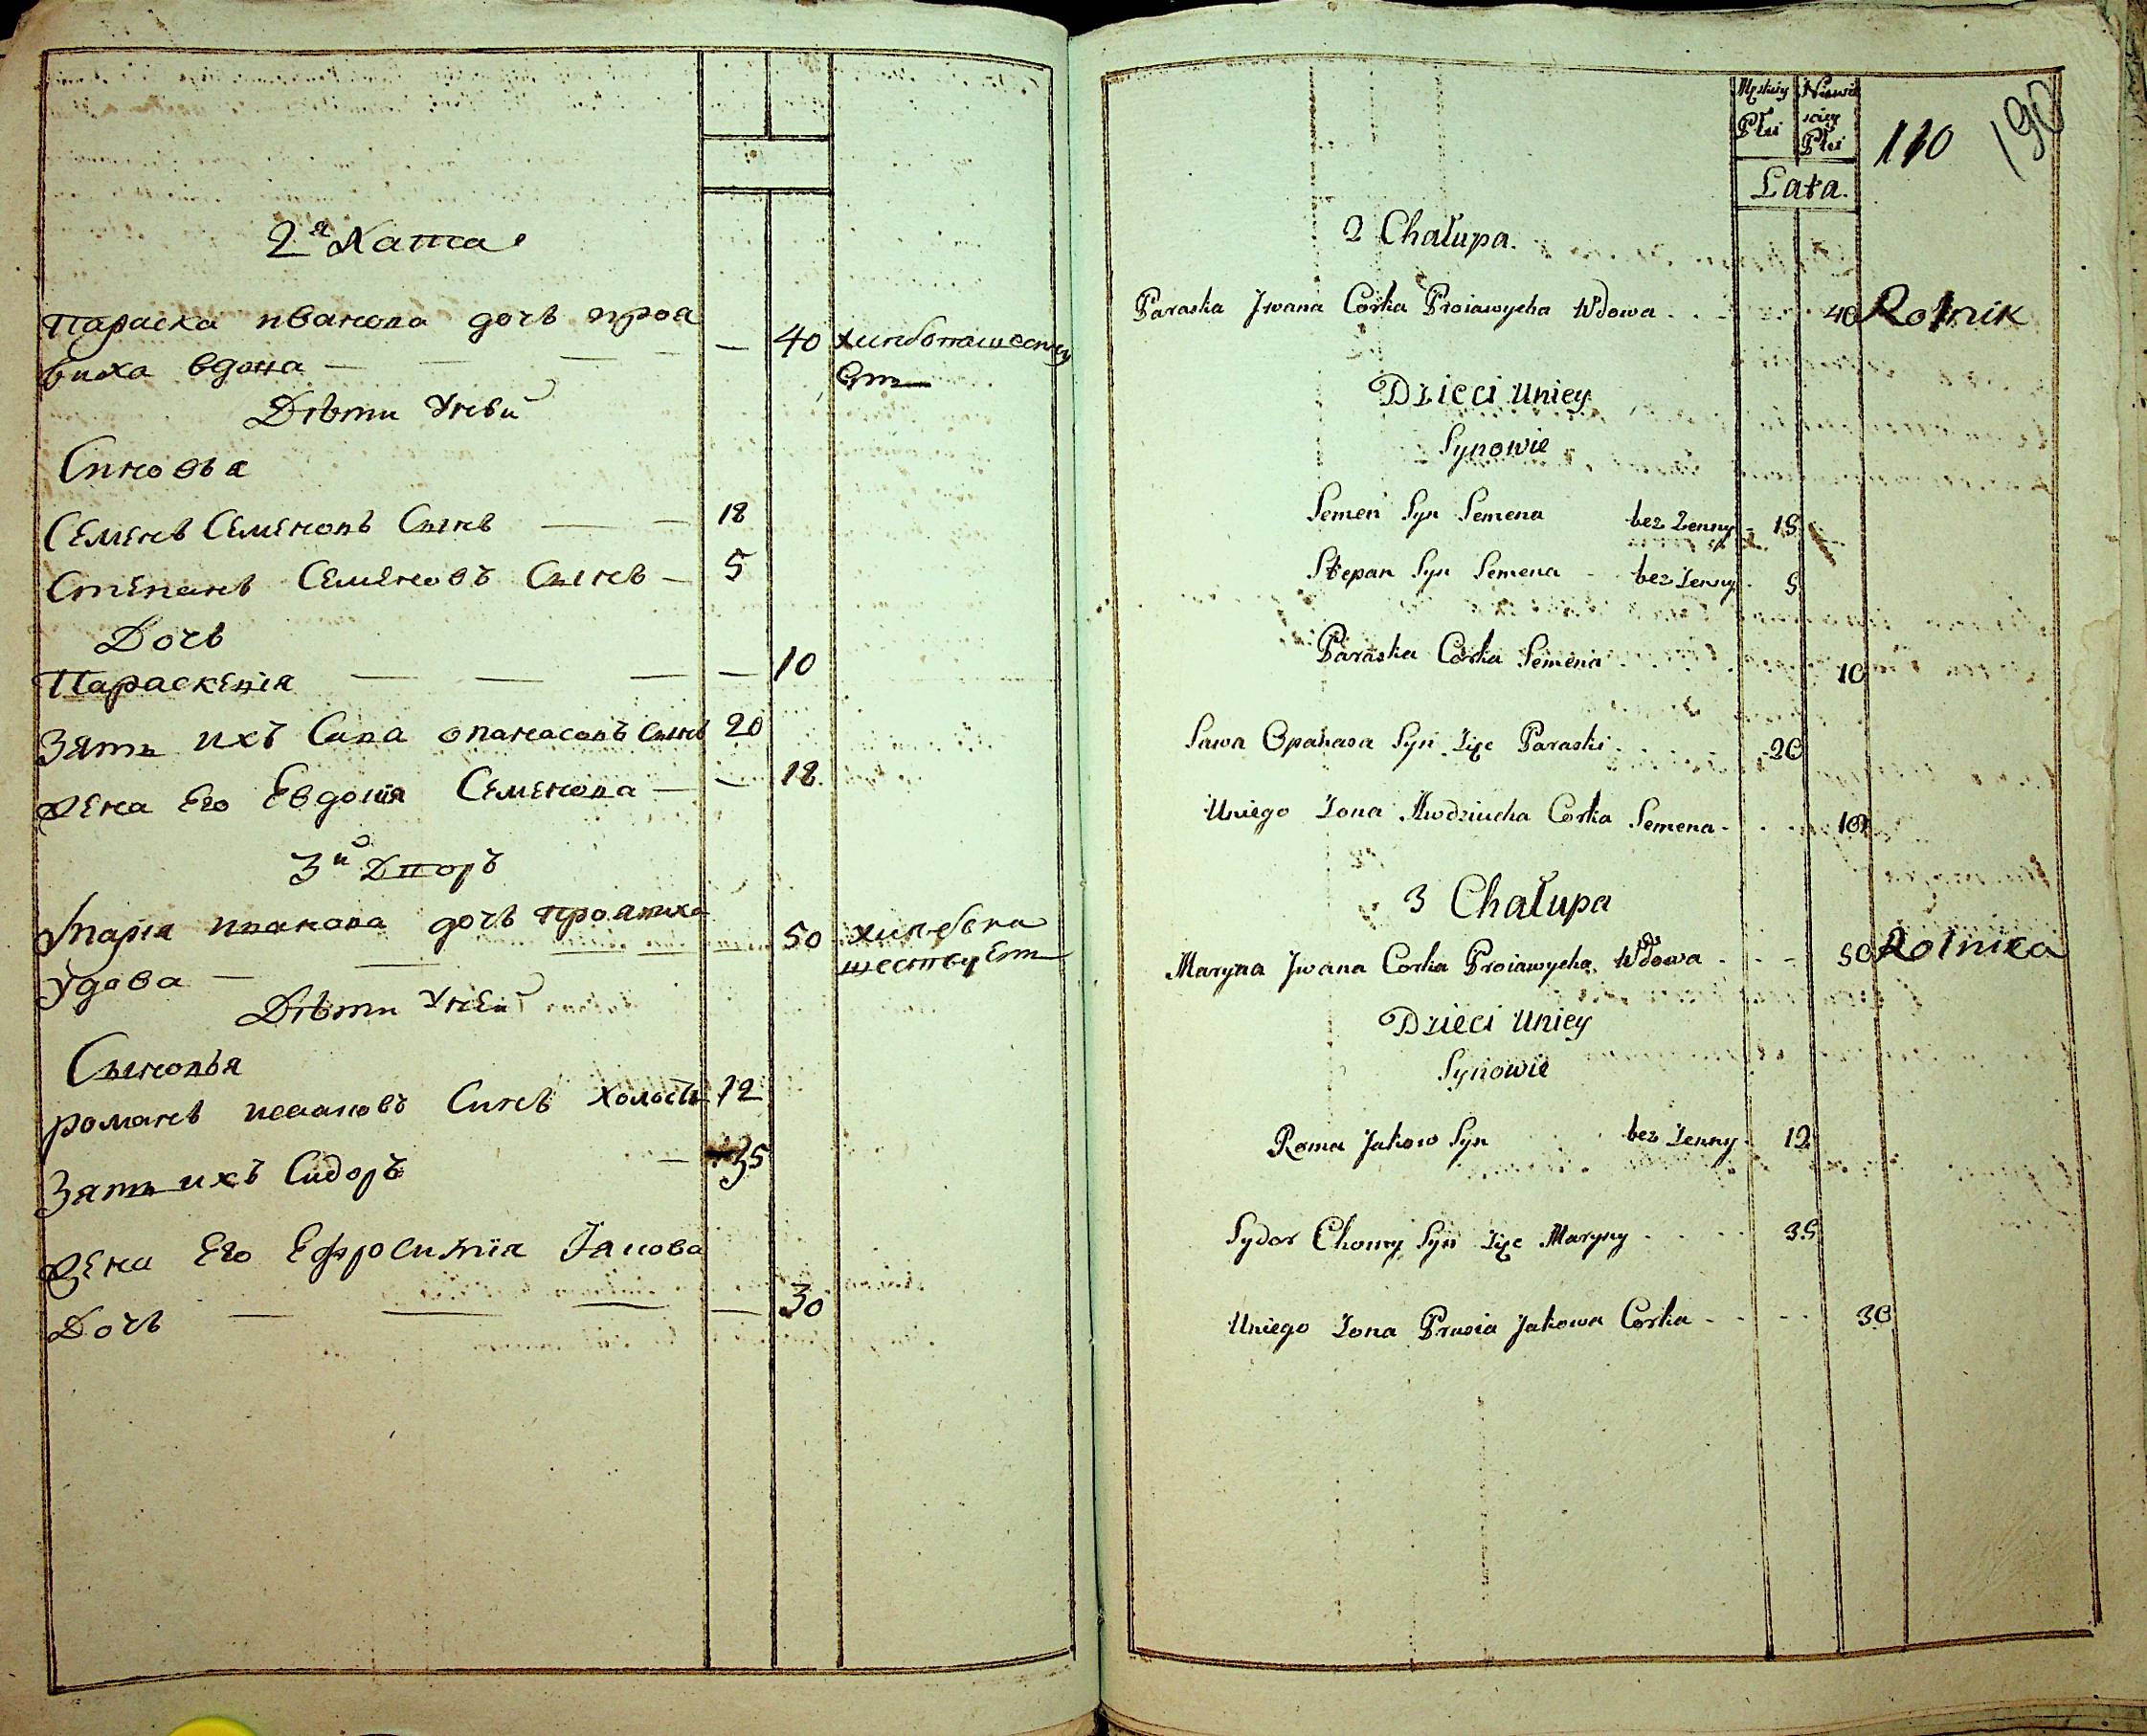 2я Хата
Параска ивановa дочъ проя
виха вдова — — — — 40 хлибопашеству
Ет
Дѣти Унѣй
Синовъя
Семенъ Семеновъ Сынъ — — 18
Степанъ Семеновъ Сынъ — 5
Дочъ
Параскевія — — — — 10
Зять ихъ Сава опанасовъ Сынъ 20
Жена Его Евдокія Семенова — — 18
3й Дворъ
Марія иванова дочъ Проявиха — 50 хлибопа
Удова — — — — шеству Ет
Дѣти Унѣй
Сыновъя
романъ Синъ холостъ 12
Зять ихъ Сидоръ — 35
Жена Его Ефросинія Якова
Дочъ — — — — 30
Męskiey Płci Niewieściey Płci 110 190
Lata.
2 Chałupa.
Paraska Jwana Corka Proiawycha Wdowa . . . 40 Rolnik
Dzieci Uniey
Synowie
Semen Syn Semena bez Zenny - 18
Stepan Syn Semena - bez Zenny - 5
Paraska Corka Semena . . . . . 10
Sawa Opanasa Syn Zięc Paraski . . . . . 20
Uniego Zona Awdziucha Corka Semena - . . . 18
3 Chałupa
Maryna Jwana Corka Proiawycha Wdowa - - - 50 Rolnika
Dzieci Uniey
Synowie
Roma Jakow Syn bez Zenny - 12
Sydor Chomy Syn Zięc Maryny . . . . 35
Uniego Zona Prusia Jakowa Corka - - - - 30